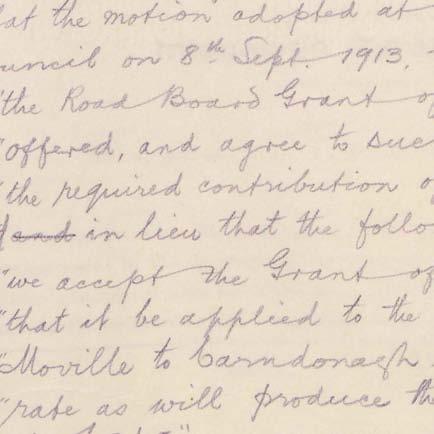 at the motion adopted at
uncil on 8th Sept. 1913,
"the Road Board Grant of
"offered, and agree to suc
"the required contribution o
and in lieu that the follo
"we accept the Grant of
"that it be applied to the
"Moville to Carndonagh
"rate as will produce the